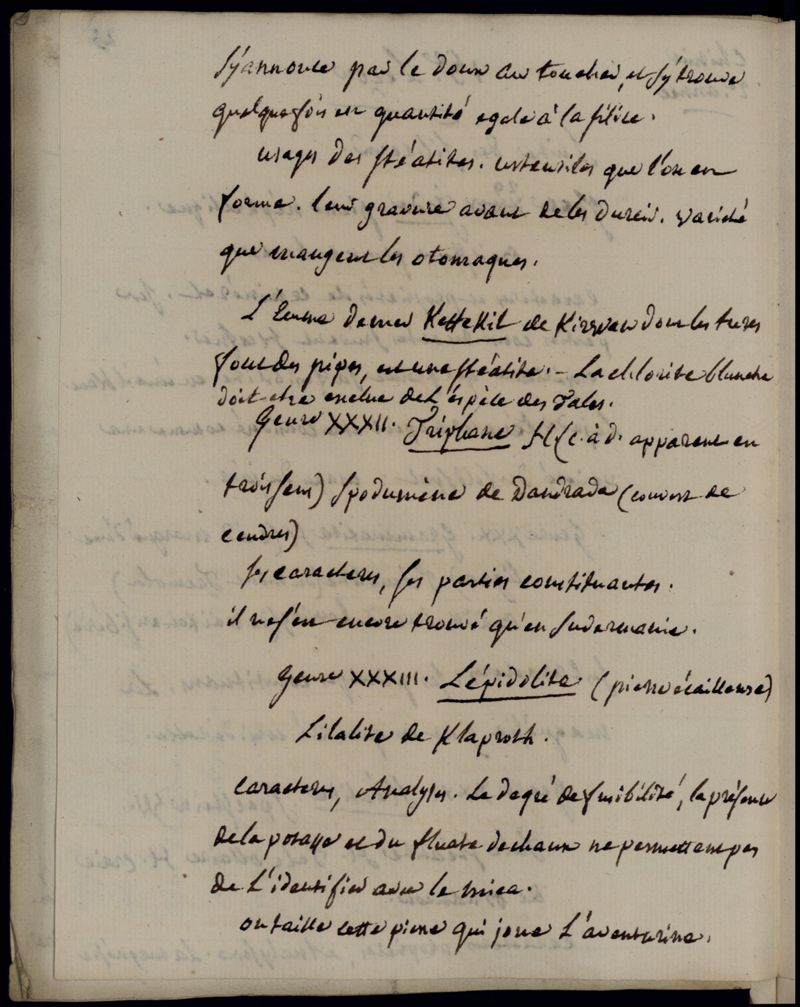 s'annonce par le doux au toucher, et s'y trouve
quelquefois en quantité egale à la silice.
usages des stéatites. ustensiles que l'on en
forme. leur gravure avant de les durcir. variété
que mangent les otomaques.
L'Ecume de mer Keffekil de Kirwan dont les turcs
font des pipes, est une stéatite. - La chlorite blanche
doit etre exclue de L'éspèce des Talcs.
Genre XXXII. Triphane H (c. à d. apparent en
trois sens) Spodumène de Dandrada (couvert de
cendres)
ses caracteres, ses parties constituantes.
il n'est encore trouvé qu'en sudermanie.
Genre XXXIII. Lépidolite (pierre écailleuse)
Lilalite de Klaproth.
Caracteres, Analyses. Le degré de fusibilité, la présence
de la potasse et du fluate de chaux ne permettent pas
de L'identifier avec le mica.
on taille cette pierre qui joue L'aventurine.